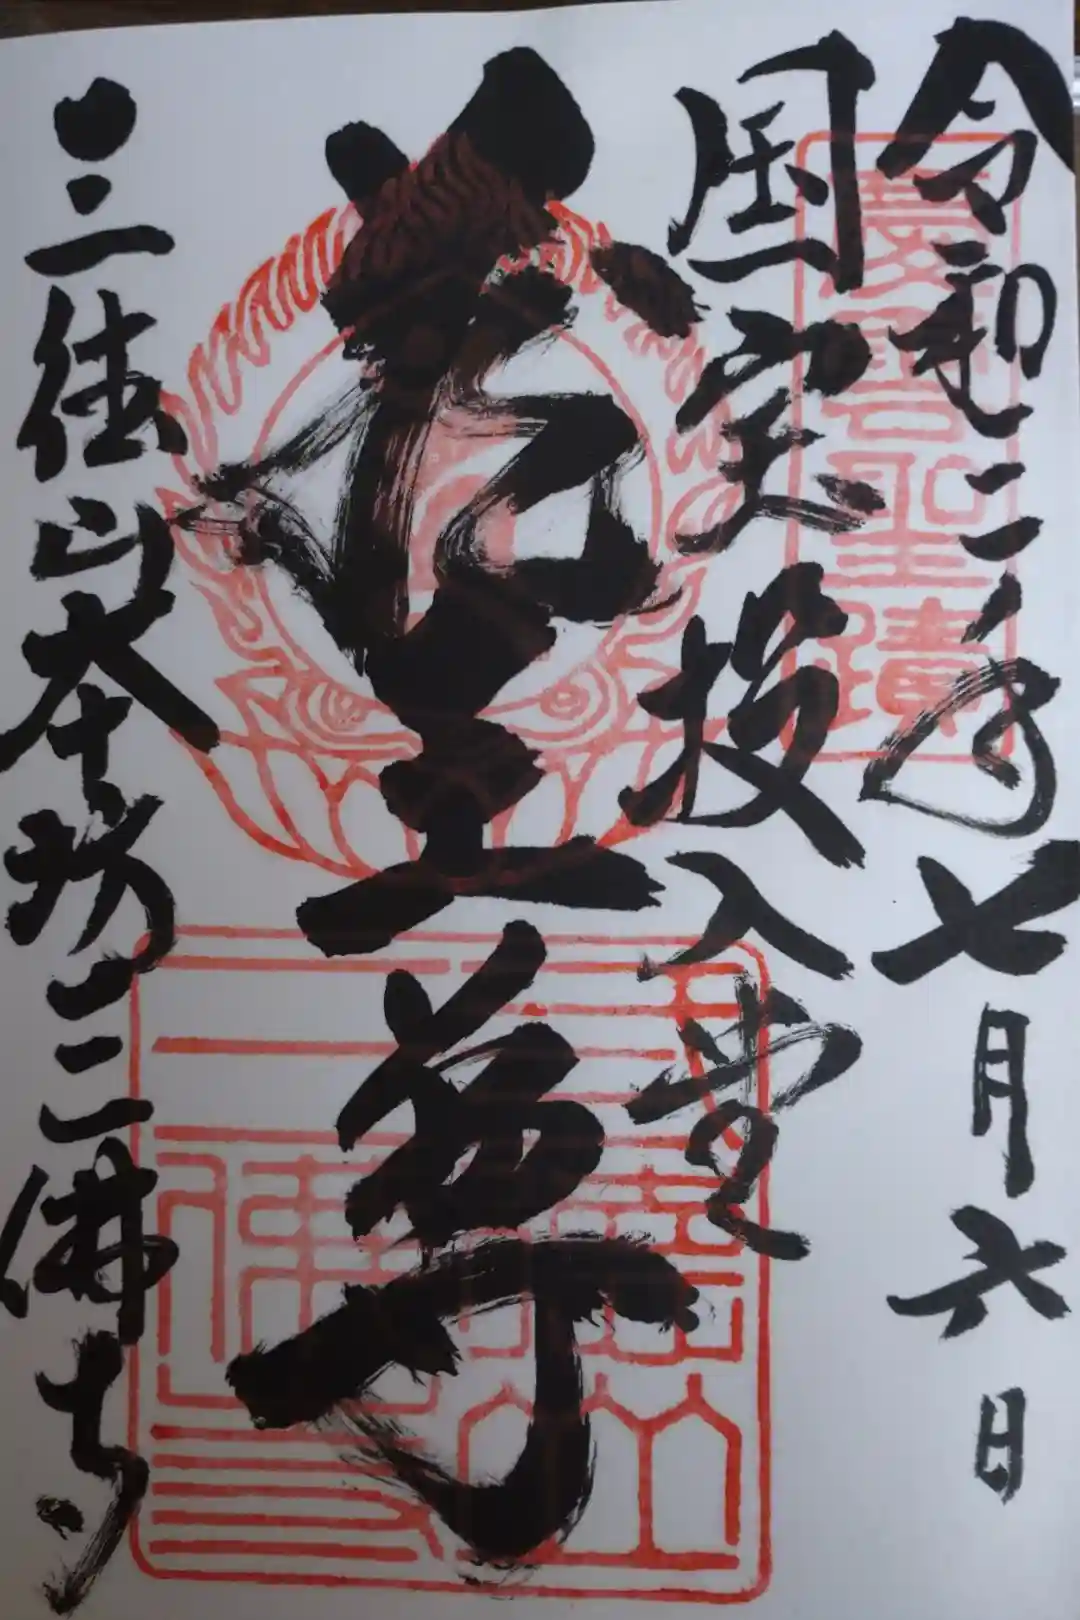 令和二年七月六日
慶雲聖蹟
国宝 投入堂
蔵王尊
三徳山本坊三佛寺